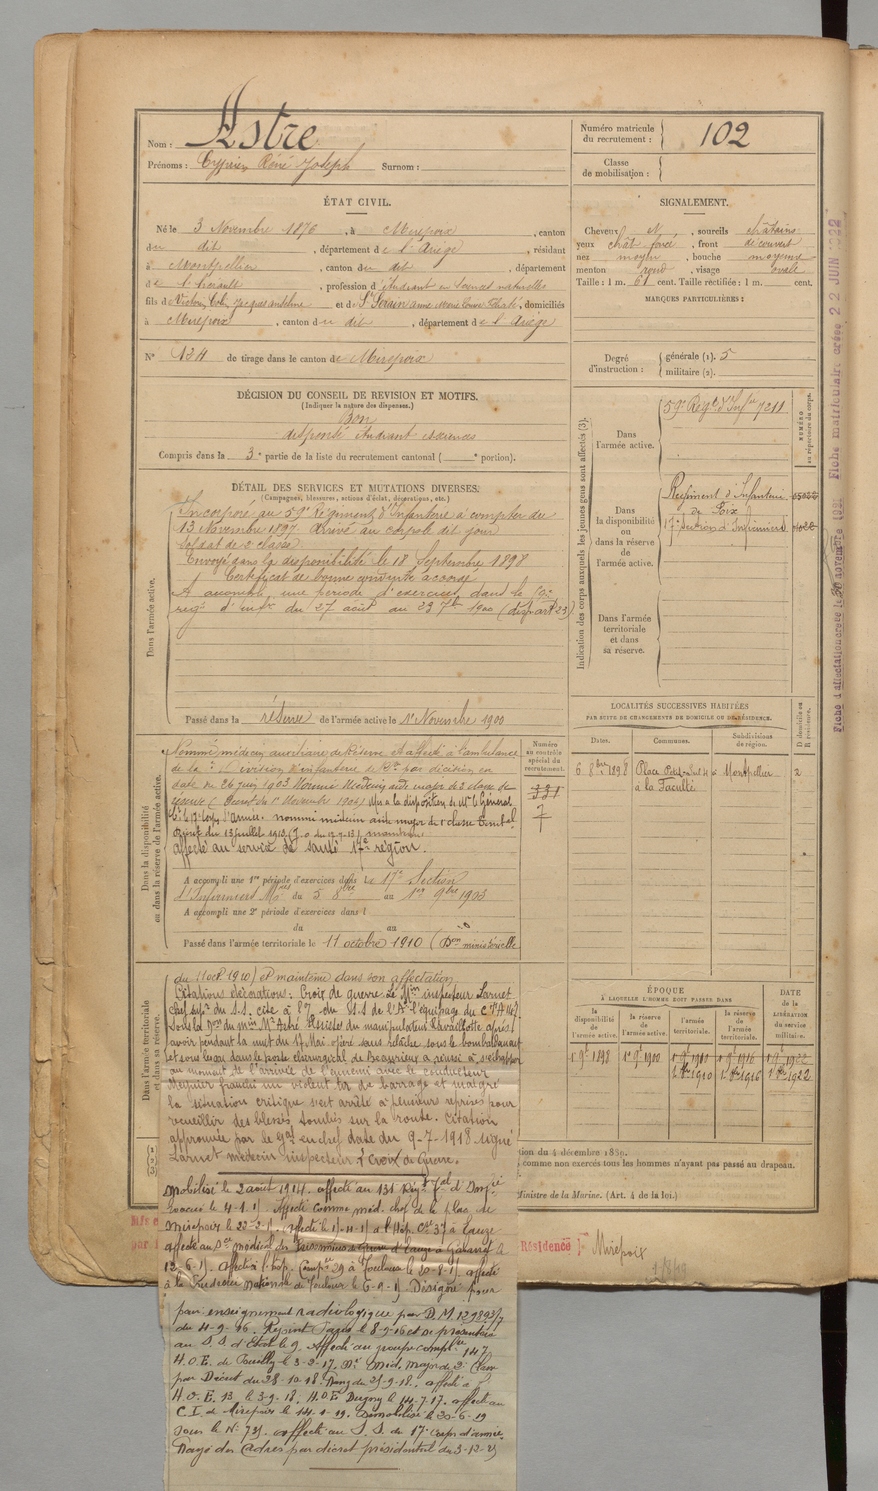 Nom : Astre
Prénoms : Cyprien René Joseph Surnom :
Numéro matricule du recrutement : 102
Classe de mobilisation :
ÉTAT CIVIL.
Né le 3 Novembre 1876, à Mirepoix, canton
du dit, département de l'Ariège, résidant
à Montpellier, canton du dit, département
de l'Hérault, profession d'étudiant en sciences naturelles
fils de Victor, Jacques Anselme et de domiciliés
à Mirepoix, canton du dit, département de l'Ariège
N° 124 de tirage dans le canton de Mirepoix
SIGNALEMENT.
Cheveux , sourcils châtains
yeux chât foncé, front découvert
nez moyen, bouche moyenne
menton rond, visage ovale
Taille : 1 m. 61 cent. Taille rectifiée : 1 m. cent.
MARQUES PARTICULIÈRES :
Degré d'instruction : générale (1). 5
militaire (2).
DÉCISION DU CONSEIL DE REVISION ET MOTIFS.
(Indiquer la nature des dispenses.)
Bon
dispensé étudiant ès sciences
Compris dans la 3e partie de la liste du recrutement cantonal ( e portion).
DÉTAIL DES SERVICES ET MUTATIONS DIVERSES.
(Campagnes, blessures, actions d'éclat, décorations, etc.)
Dans l'armée active.
Incorporé au 59e Régiment d'Infanterie à compter du
13 Novembre 1897. Arrivé au corps le dit jour
Soldat de 2e classe
Envoyé dans la disponibilité le 18 Septembre 1898
Certificat de bonne conduite accordé
A accompli une période d'exercices dans le 59e
régt d'infie du 27 août au 23 7bre 1900 (disp art 23)
Passé dans la réserve de l'armée active le 1er Novembre 1900
Indication des corps auxquels les jeunes gens sont affectés (3).
NUMÉRO au répertoire du corps.
Dans l'armée active.
59e Régt d'Infie 7211
Dans la disponibilité ou dans la réserve de l'armée active.
Régiment d'Infanterie
de Foix
17e Section d'Infirmiers
Dans l'armée territoriale et dans sa réserve.
LOCALITÉS SUCCESSIVES HABITÉES
PAR SUITE DE CHANGEMENTS DE DOMICILE OU DE RÉSIDENCE.
Dates. Communes. Subdivisions de région. D domicile ou R résidence.
6 8bre 1898 Place Montpellier
à la Faculté
Dans la disponibilité ou dans la réserve de l'armée active.
Numéro au contrôle spécial du recrutement.
331
7
Nommé médecin auxiliaire de Réserve et affecté à l'ambulance
de la Division d'infanterie par décision en
date du 26 juin 1903 Nommé Médecin aide major de 2e classe de
réserve (Décret du 1er Novembre 1903) Mis à la disposition de Mr le Général
Ct le 17e Corps d'Armée. nommé médecin aide major de 1e classe
Décret du 13 juillet 1913 (J.O. du 17-7-13) maintenu
affecté au service de santé 17e région.
A accompli une 1re période d'exercices dans la 17e Section
d'Infirmiers Mres du 5 8bre au 1er 9bre 1903
A accompli une 2e période d'exercices dans l
du au
Passé dans l'armée territoriale le 11 octobre 1910 (Don ministérielle
Dans l'armée territoriale et dans sa réserve.
du 11 oct. 1910) et maintenu dans son affectation
Citations Décorations : Croix de guerre. Le Min inspecteur Larnet
chef supr du S.S. cite à l'O. du S.S de l'Ae l'équipage du
avoir pendant la nuit du 27 Mai opéré sans relâche sous le bombardement
et sous le gaz dans le poste chirurgical de Beaurieux a réussi à s'échapper
au moment de l'arrivée de l'ennemi avec le conducteur
Meunier franchi un violent tir de barrage et malgré
la situation critique s'est arrêté à plusieurs reprises pour
recueillir des blessés tombés sur la route. Citation
approuvée par le Gal en chef date du 9-7-1918 signé
Larnet médecin inspecteur. Croix de Guerre.
Mobilisé le 2 août 1914. affecté au 131 Régt Tal d'Infie
Affecté comme méd. chef de la place de
Mirepoix le à l'Hôp. Cre 37 à Eauze
affecté au Sce médical des Prisonniers de Guerre d'Eauze à Gabarret le
affecté à l'hop. Compre 29 à Toulouse le affecté
à la Poudrerie Nationale de Toulouse le Désigné pour
pour enseignement radiologique par D.M 129893/7
du 4-9-16. Rejoint Paris le 8-9-16 et se présentera
au S.S. d'Etat le 9. Affecté au groupe compl. 147
H.O.E. de le 3-2-17. Méd. Major de 2e Classe
par Décret du 28-10-18. Rang du 25-9-18. affecté à l'
H.O.E. 13 le 3-9-18. H.O.E Dugny le 14-7-17. affecté au
C.I. de Mirepoix le 14-1-19. Démobilisé le 20-6-19
sous le N° 731. affecté au S.S. du 17e Corps d'armée.
Rayé des Cadres par décret présidentiel du 3-12-25
ÉPOQUE
À LAQUELLE L'HOMME DOIT PASSER DANS
la disponibilité de l'armée active. la réserve de l'armée active. l'armée territoriale. la réserve de l'armée territoriale.
DATE de la LIBÉRATION du service militaire.
1er 9bre 1898 1er 9bre 1900 1er 9bre 1910 1er 9bre 1916 1er 9bre 1922
1er 8bre 1910 1er 8bre 1916 1er 8bre 1922
tion du 4 décembre 1889.
comme non exercés tous les hommes n'ayant pas passé au drapeau.
Ministre de la Marine. (Art. 4 de la loi.)
Résidence : Mirepoix
Fiche d'affectation créée le 30 novembre 1921 Fiche matriculaire créée 22 JUIN 1922